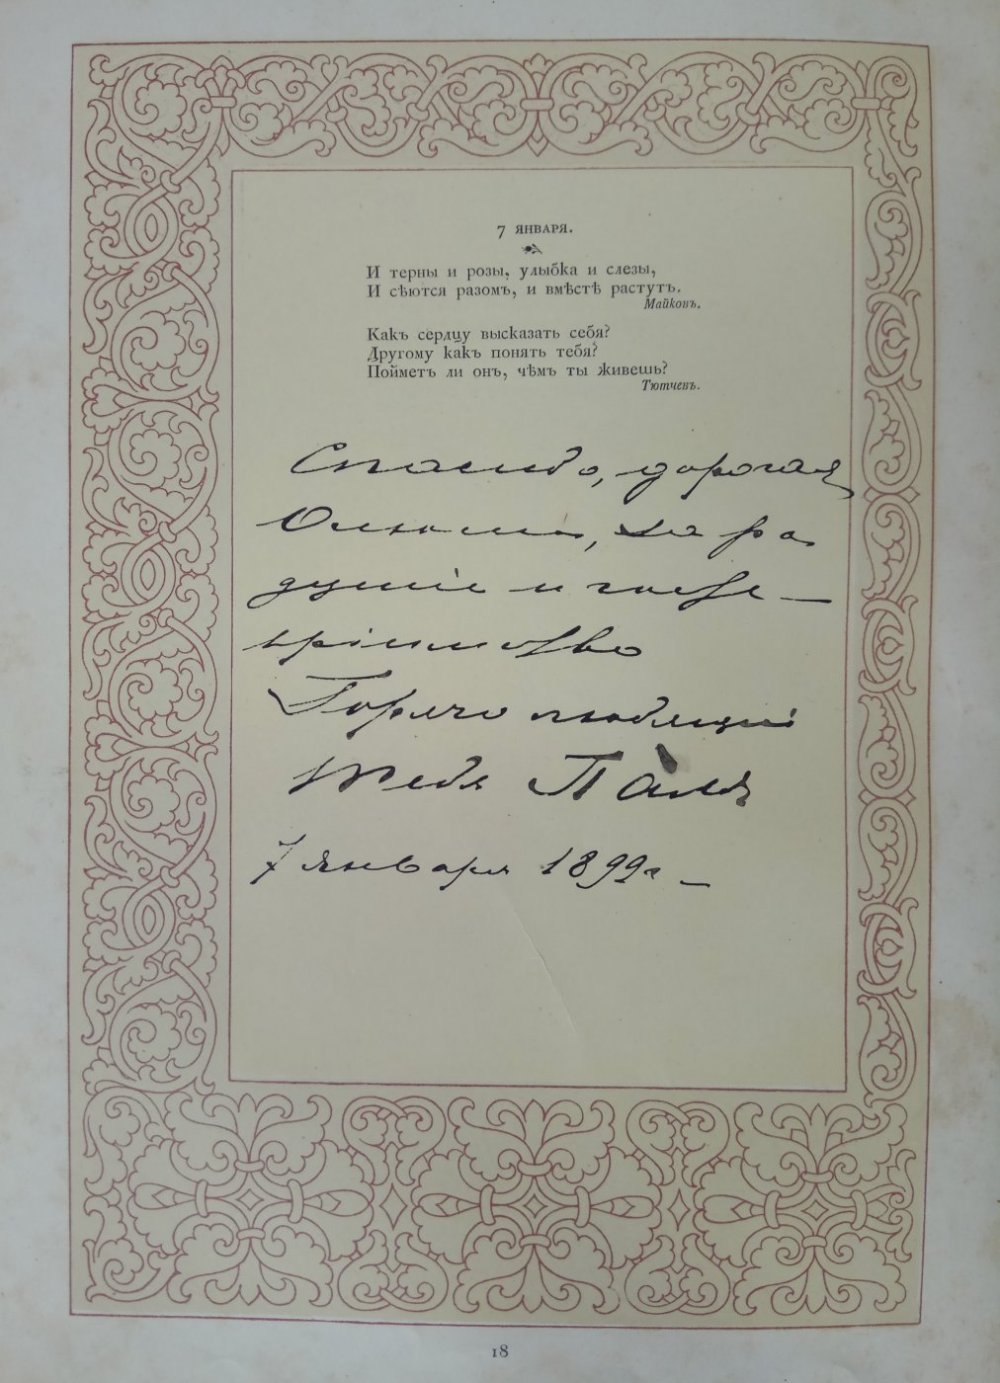 7 ЯНВАРЯ.
И терны и розы, улыбка и слезы,
И сѣются разомъ, и вмѣстѣ растутъ.
Майковъ.
Какъ сердцу высказать себя?
Другому какъ понять тебя?
Пойметъ ли онъ, чѣмъ ты живешь?
Тютчевъ.
Спасибо, дорогая
за ра
душіе и госте-
пріимство
Горячо любящій
тебя Паля
7 января 1899 г –
18